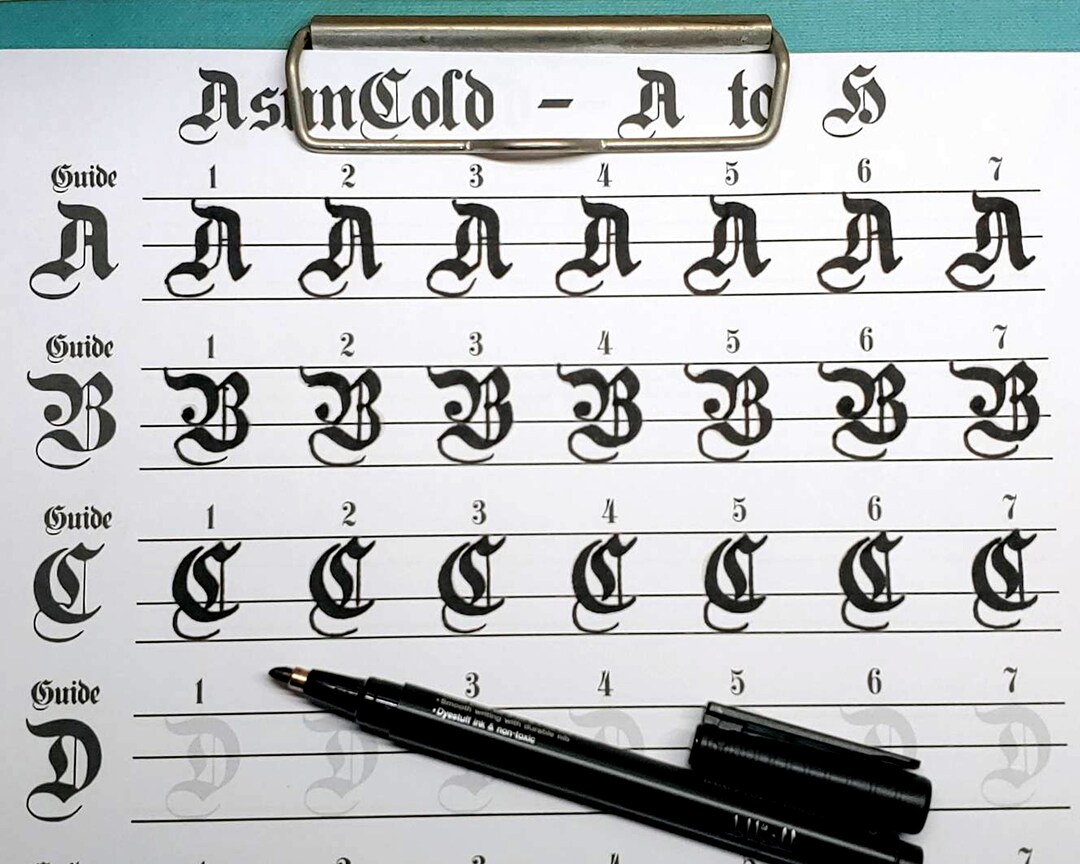 - A to H
Guide 1 2 3 4 5 6 7
A A A A A A A A
Guide 1 2 3 4 5 6 7
B B B B B B B B
Guide 1 2 3 4 5 6 7
C C C C C C C C
Guide 1 3 4 5 6 7
D D D D D D
•Smooth writing with durable nib
•Dyestuff ink & non-toxic